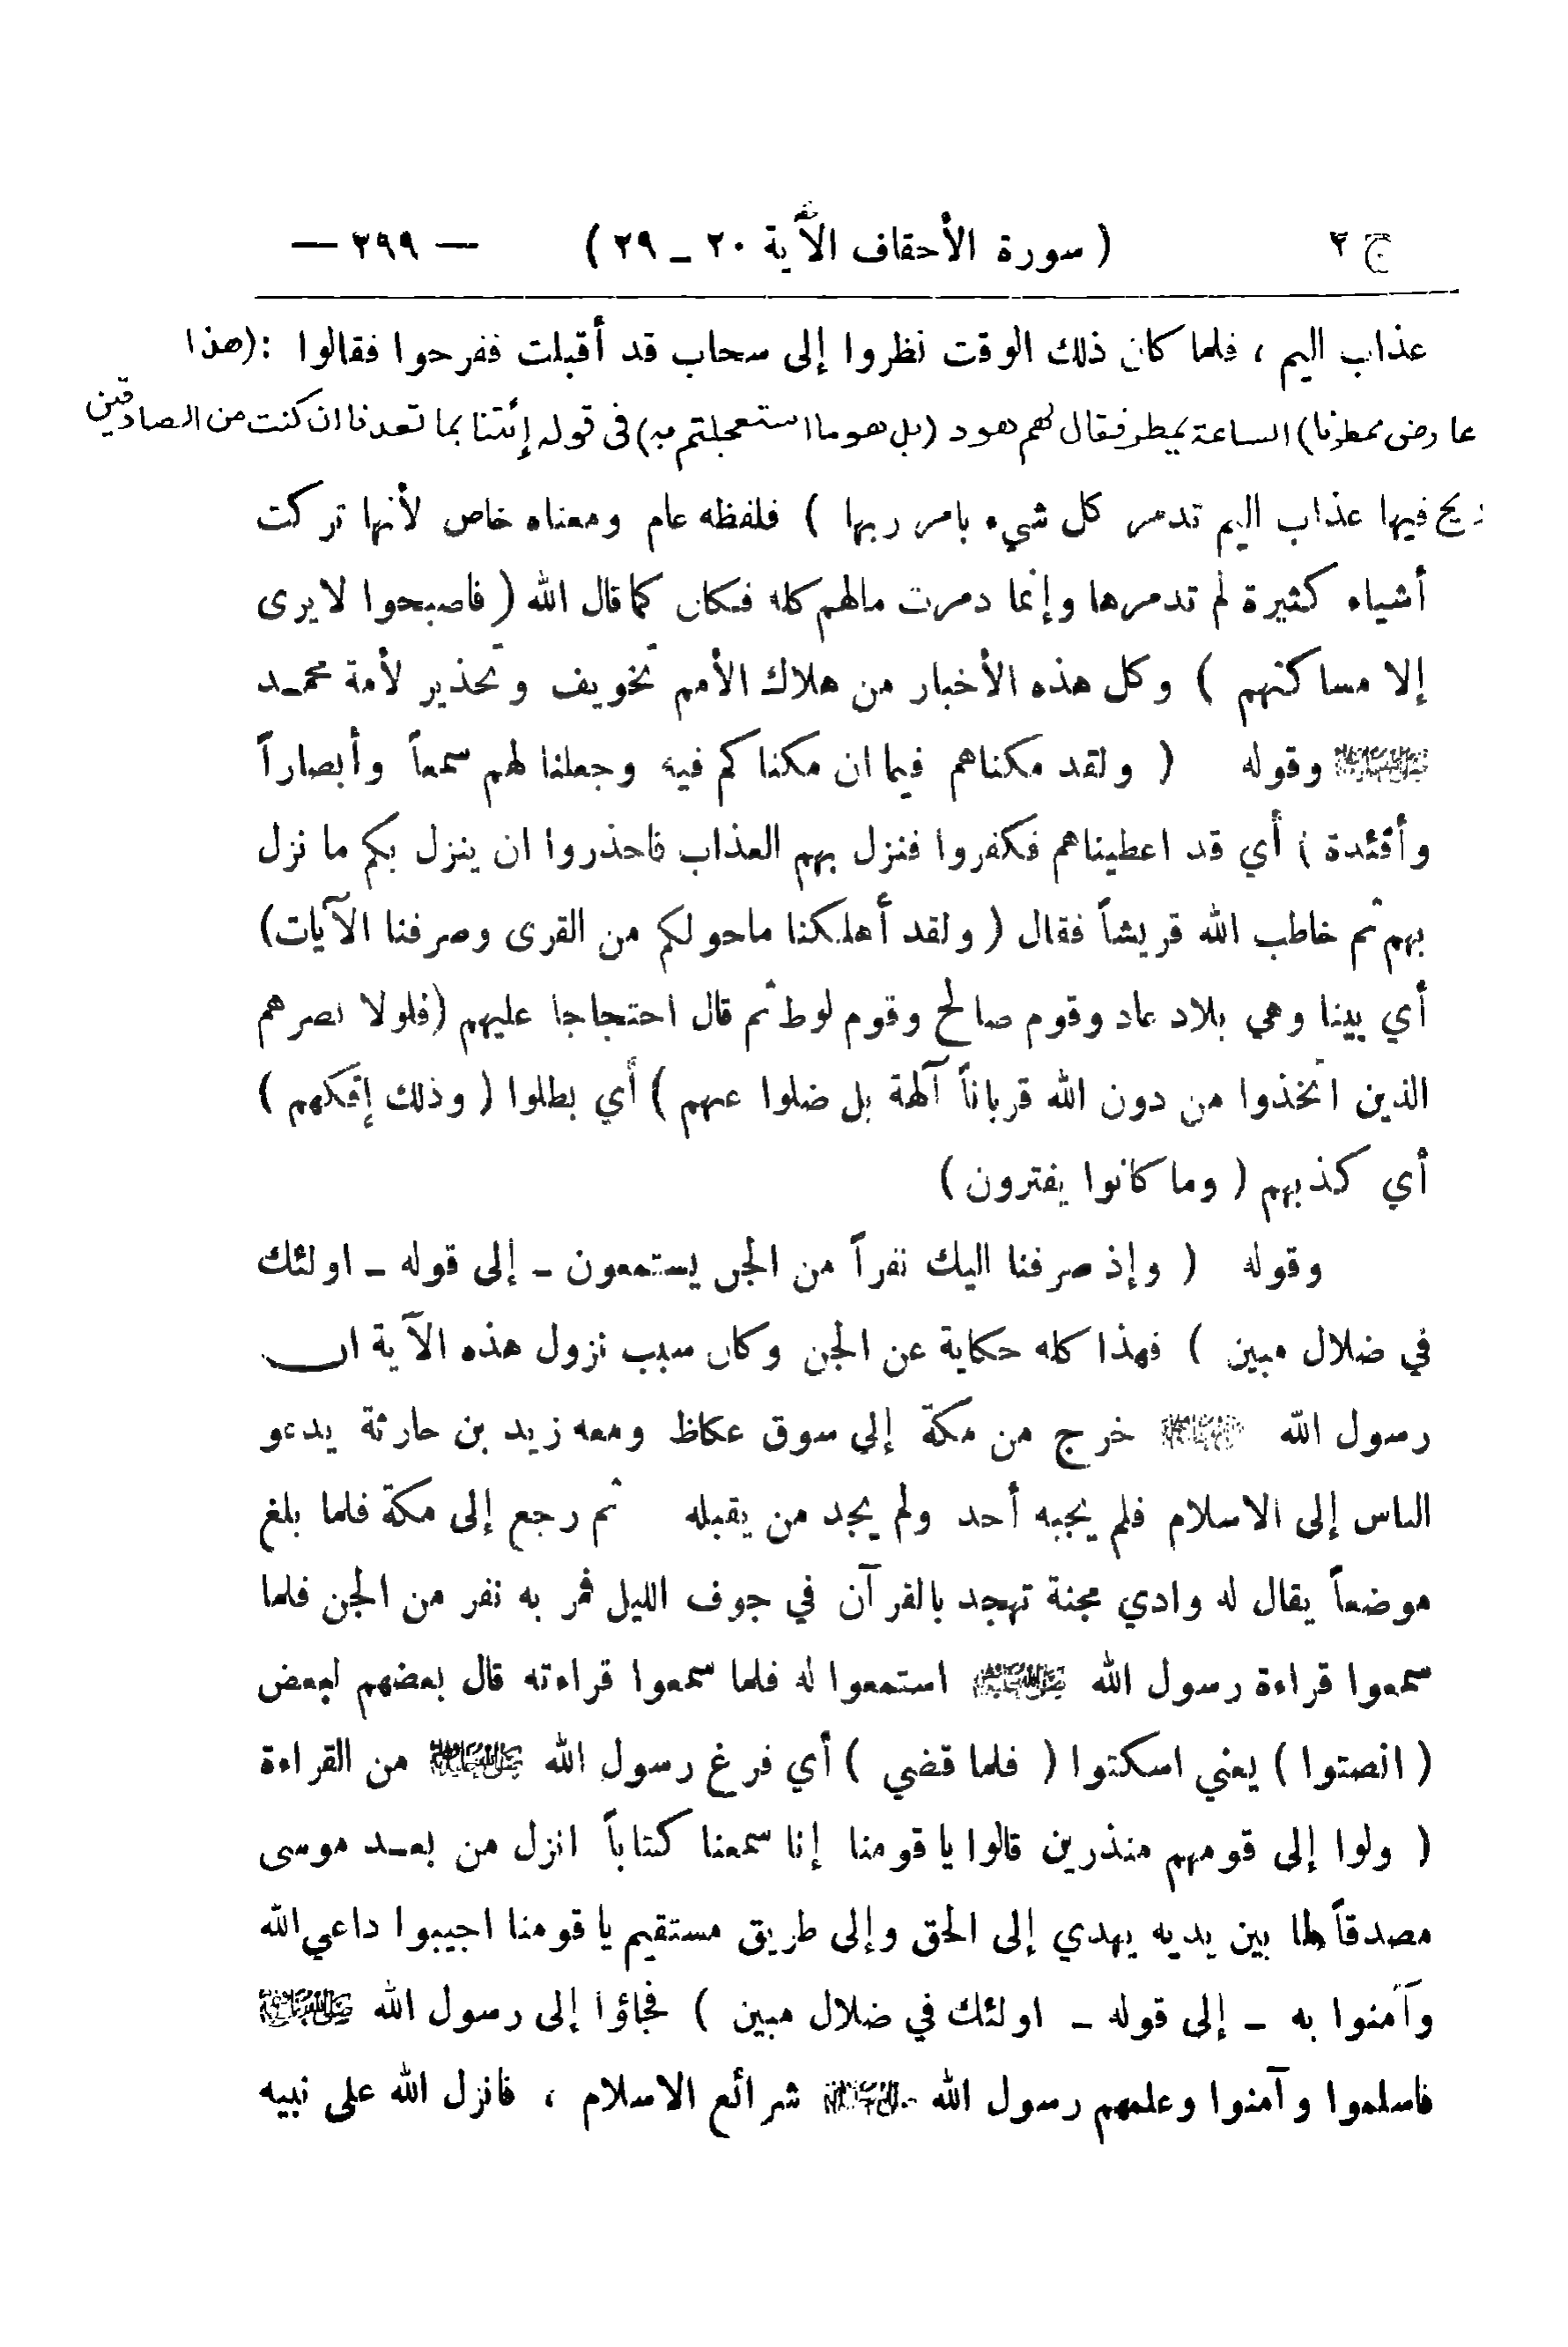 ج ٢ ( سورة الأحقاف الآية ٢٠ ـ ٢٩ ) — ٢٩٩ —
عذاب اليم ، فلما كان ذلك الوقت نظروا إلى سحاب قد أقبلت ففرحوا فقالوا : (هذا
عارض ممطرنا) الساعة يمطر فقال لهم هود (بل هو ما استعجلتم به) في قوله إئتنا بما تعدنا ان كنت من الصادقين
ريح فيها عذاب اليم تدمر كل شيء بامر ربها ) فلفظه عام ومعناه خاص لأنها تركت
أشياء كثيرة لم تدمرها وإنما دمرت مالهم كله فكان كما قال الله ( فاصبحوا لا يرى
إلا مساكنهم ) وكل هذه الأخبار من هلاك الأمم تخويف وتحذير لأمة محمد
ﷺ وقوله ( ولقد مكناهم فيما ان مكناكم فيه وجعلنا لهم سمعاً وأبصاراً
وأفئدة ) أي قد اعطيناهم فكفروا فنزل بهم العذاب فاحذروا ان ينزل بكم ما نزل
بهم ثم خاطب الله قريشاً فقال ( ولقد أهلكنا ماحولكم من القرى وصرفنا الآيات)
أي بينا وهي بلاد عاد وقوم صالح وقوم لوط ثم قال احتجاجا عليهم (فلولا نصرهم
الذين اتخذوا من دون الله قرباناً آلهة بل ضلوا عنهم ) أي بطلوا ( وذلك إفكهم )
أي كذبهم ( وما كانوا يفترون )
وقوله ( وإذ صرفنا اليك نفراً من الجن يستمعون ـ إلى قوله ـ اولئك
في ضلال مبين ) فهذا كله حكاية عن الجن وكان سبب نزول هذه الآية ان
رسول الله ﷺ خرج من مكة إلى سوق عكاظ ومعه زيد بن حارثة يدعو
الناس إلى الاسلام فلم يجبه أحد ولم يجد من يقبله ثم رجع إلى مكة فلما بلغ
موضعاً يقال له وادي مجنة تهجد بالقرآن في جوف الليل فمر به نفر من الجن فلما
سمعوا قراءة رسول الله ﷺ استمعوا له فلما سمعوا قراءته قال بعضهم لبعض
( انصتوا ) يعني اسكتوا ( فلما قضي ) أي فرغ رسول الله ﷺ من القراءة
( ولوا إلى قومهم منذرين قالوا يا قومنا إنا سمعنا كتاباً انزل من بعد موسى
مصدقاً لما بين يديه يهدي إلى الحق وإلى طريق مستقيم يا قومنا اجيبوا داعي الله
وآمنوا به ـ إلى قوله ـ اولئك في ضلال مبين ) فجاؤا إلى رسول الله ﷺ
فاسلموا وآمنوا وعلمهم رسول الله ﷺ شرائع الاسلام ، فانزل الله على نبيه